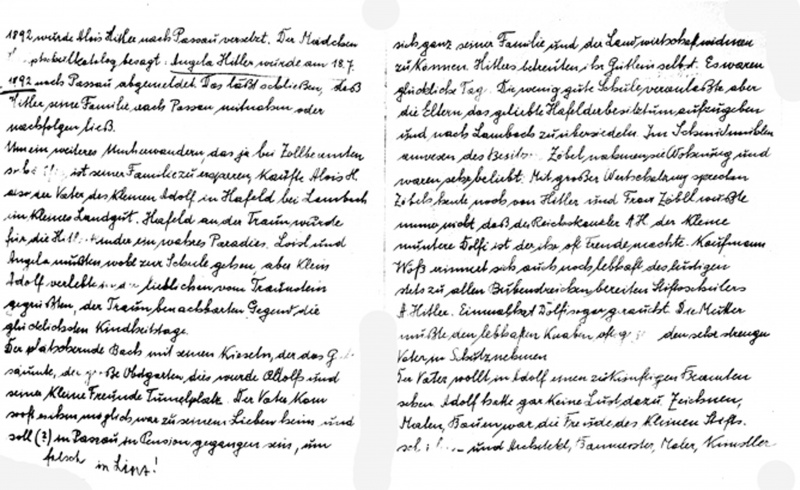 1892 wurde Alois Hitler nach Passau versetzt. Der Mädchen
schulkatalog besagt: Angela Hitler wurde am 18.7.
1892 nach Passau abgemeldet. Das läßt schließen, daß
Hitler seine Familie nach Passau mitnahm oder
nachfolgen ließ.
Um ein weiteres Umherwandern, das ja bei Zollbeamten
ist seiner Familie zu ersparen, kaufte Alois H.
also der Vater des kleinen Adolf in Hafeld bei Lambach
ein kleines Landgut. Hafeld an der Traun wurde
für die Kinder ein wahres Paradies. Loisl und
Angela mußten wohl zur Schule gehen, aber klein
Adolf verlebte in der lieblichen vom Traunstein
gegrüßten, der Traun benachbarten Gegend die
glücklichsten Kindheitstage.
Der plätschernde Bach mit seinen Kieseln, der das
säumte, der große Obstgarten, dies wurde Adolfs und
seine kleine Freunde Tummelplatz. Der Vater kam
so oft es ihm möglich war zu seinen Lieben heim und
soll (?) in Passau in Pension gegangen sein, um
falsch in Linz!
sich ganz seiner Familie und der Landwirtschaft widmen
zu können. Hitlers betreuten ihr Gütlein selbst. Es waren
glückliche Tage. Die wenig gute Schule veranlaßte aber
die Eltern das geliebte Hafelderbesitztum aufzugeben
und nach Lambach zu übersiedeln. Im Schmidmühlen
anwesen des Besitz Zöbel nahmen sie Wohnung und
waren sehr beliebt. Mit großer Wertschätzung sprechen
Zöbels heute noch von Hitler und Frau Zöbll wußte
immer nicht daß der Reichskanzler A.H. der kleine
muntere Dolfi ist der ihr oft Freude machte. Kaufmann
Weß erinnert sich auch noch lebhaft des lustigen
stets zu allen Bubenstreichen bereiten Stiftsschülers
A. Hitler. Einmal hat Dolfi sogar geraucht. Die Mutter
mußte den lebhaften Knaben oft den sehr strengen
Vater in Schutz nehmen
Der Vater wollt in Adolf einen zukünftigen Beamten
sehen. Adolf hatte gar keine Lust dazu. Zeichnen,
Malen, Bauen, war die Freude des kleinen Stifts.
und Architekt, Baumeister, Maler, Künstler